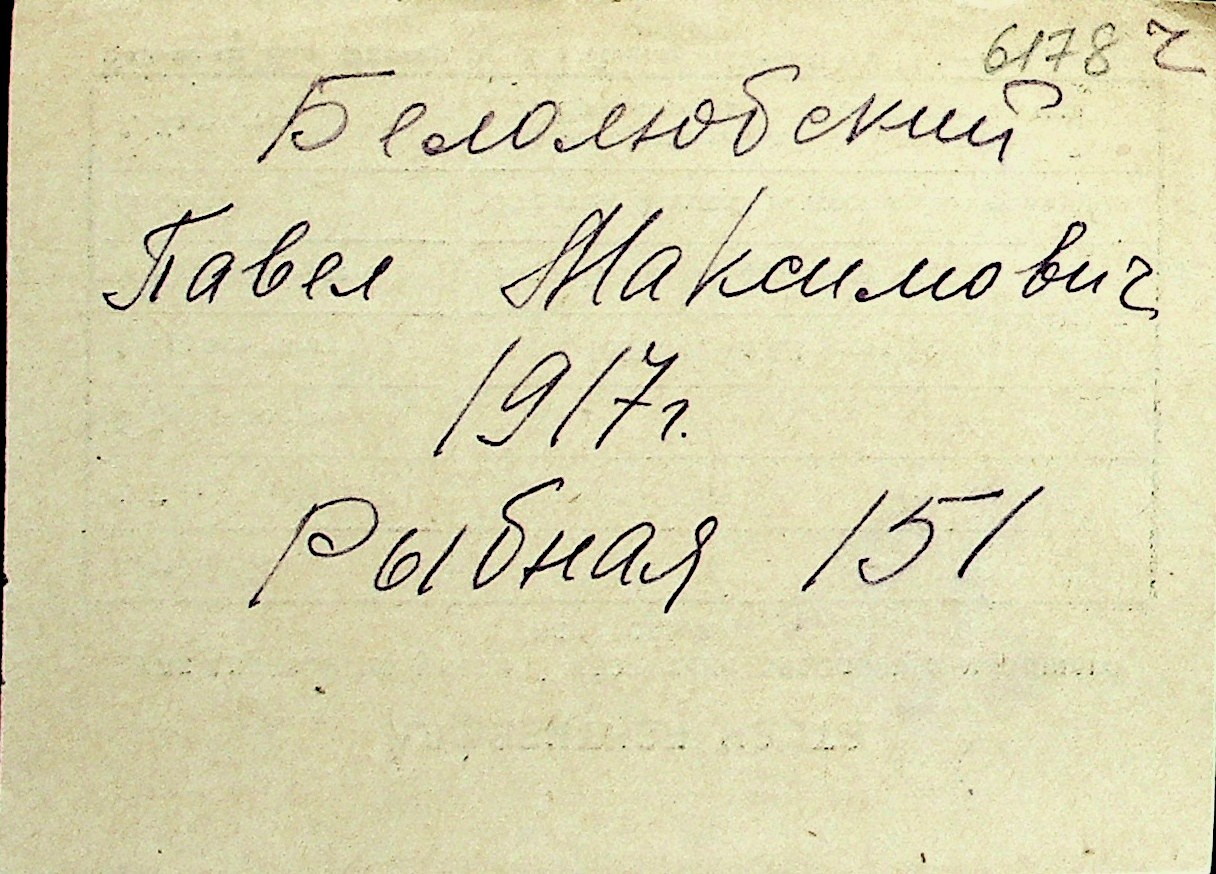 6178 ч
Белолюбский
Павел Максимович
1917г.
Рыбная 151